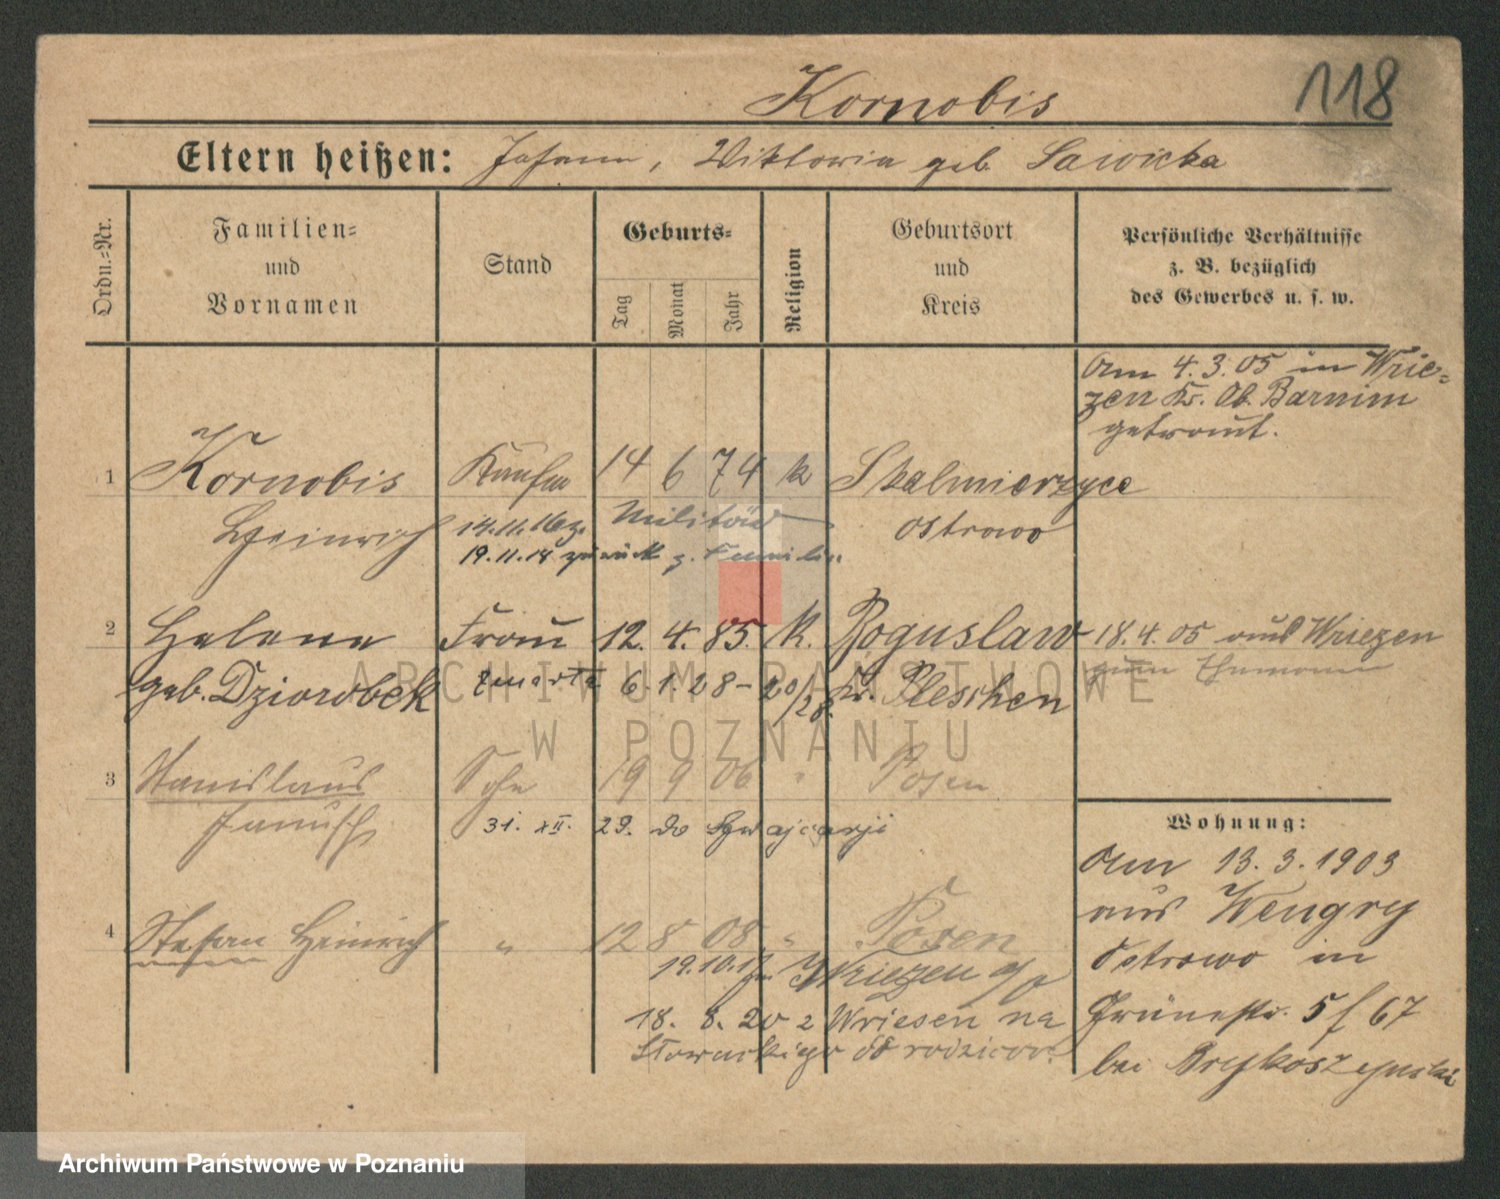 Kornobis
118
Eltern heißen: Johann, Wiktoria geb. Sawicka
Ordn.-Nr.
Familien-
und
Vornamen
Stand
Geburts-
Tag
Monat
Jahr
Religion
Geburtsort
und
Kreis
Persönliche Verhältnisse
z. B. bezüglich
des Gewerbes u. s. w.
Am 4.3.05 in Wrie-
zen Kr. Ob. Barnim
getraut.
1 Kornobis Kaufm 14 6 74 k Skalmierzyce
Heinrich 14.11.16 z. Militär Ostrowo
19.11.18 zurück z. Familie
2 Helene Frau 12. 4. 85. k. Boguslaw 18.4.05 aus Wriezen
geb. Dziorobek zmarła 6.1.28 - 20/28. Kr. Pleschen zum Ehemann
3 Stanislaus Sohn 19 9 06 " Posen
Janusch 31. XII. 29. do Szwajcarji
4 Stefan Heinrich " 12 8 08 " Posen
19.10.17 Wriezen a/O
18. 8. 20 z Wriesen na
Słowackiego do rodziców.
Wohnung:
Am 13.3.1903
aus Wengry
Ostrowo in
Grünestr. 5 f 67
bei
ARCHIWUM PAŃSTWOWE
W POZNANIU
Archiwum Państwowe w Poznaniu